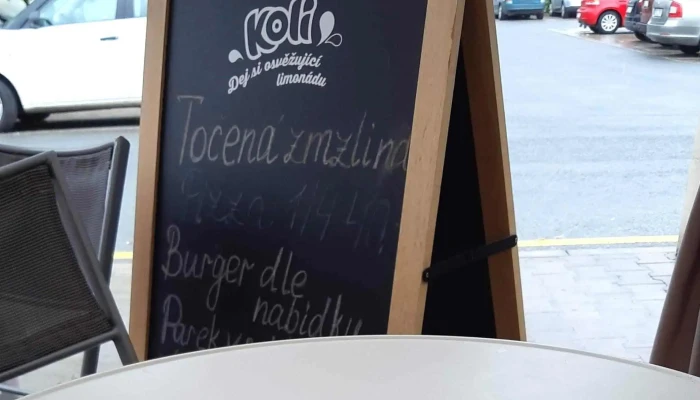 Koli
Dej si osvěžující
limonádu
Točená zmzlina
Pizza 1/4
Burger dle
nabídky
Parek v